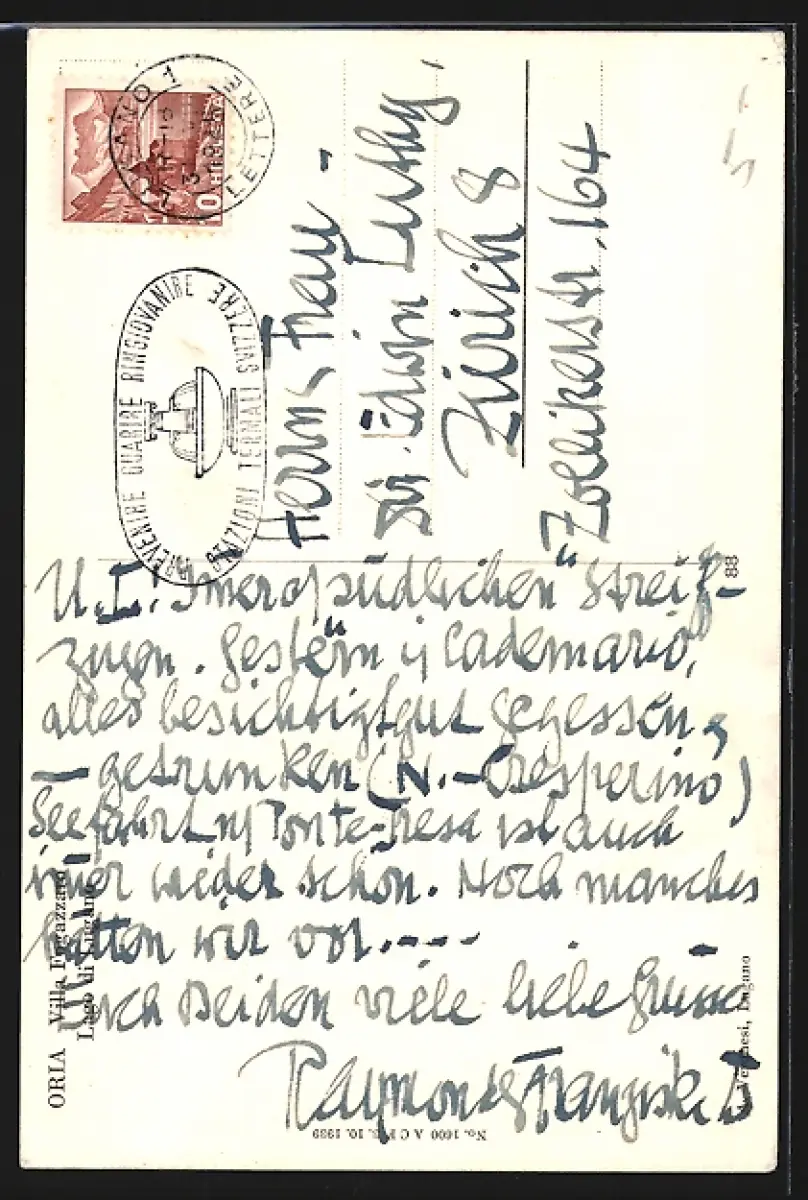 LUGANO 1
LETTERE
HELVETIA
10
PREVENIRE GUARIRE RINGIOVANIRE
STAZIONI TERMALI SVIZZERE
Herrn & Frau
Dir. Edwin Luthy,
Zürich 8
Zollikerstr. 164
88
U. L.! südlichen Streif-
zügen. Gestern in Cademario,
alles besichtigt gut gegessen,
— getrunken (N. - Cresperino)
Seefahrt n/ Ponte-Tresa ist auch
immer wieder schön. Noch manches
hätten wir vor.----
Euch Beiden viele liebe Grüsse
Raymond & Franziska
ORIA Villa Fogazzaro
Lago di Lugano
Veronesi, Lugano
No. 1600 A C F 3. 10. 1939